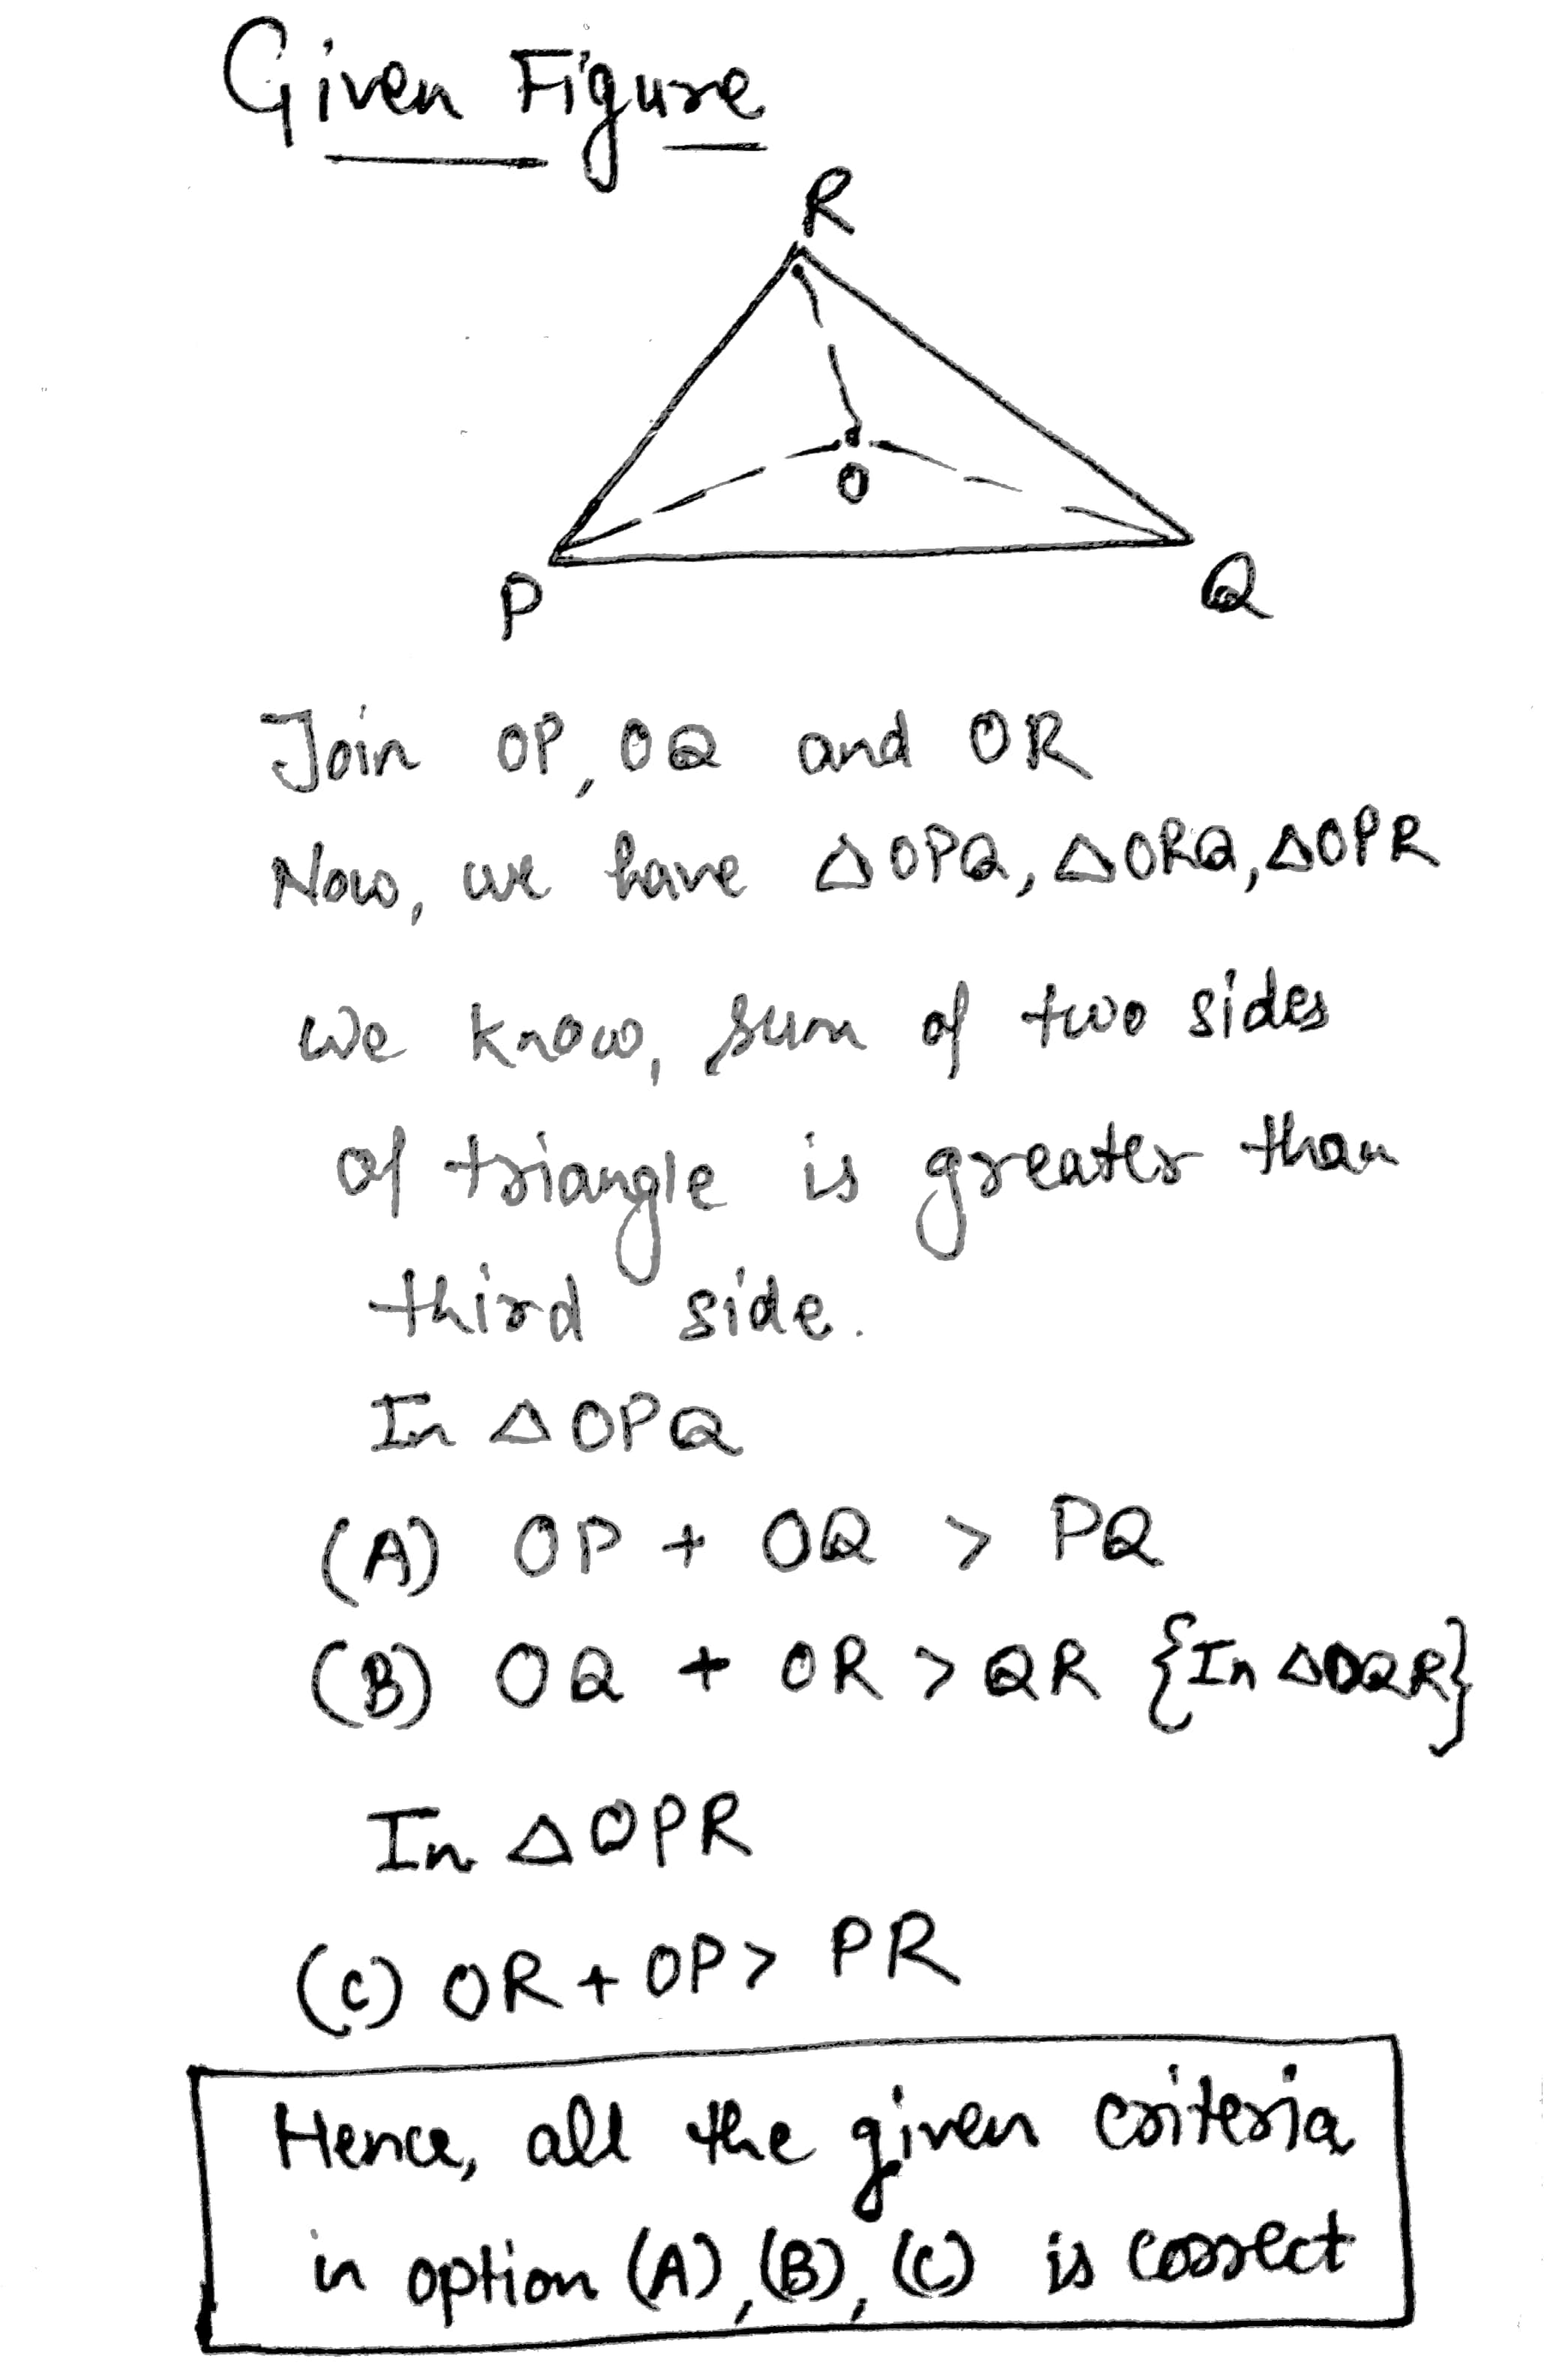 Given Figure
R
O
P
Q
Join OP, OQ and OR
Now, we have △OPQ, △ORQ, △OPR
We know, sum of two sides
of triangle is greater than
third side.
In △OPQ
(A) OP + OQ > PQ
(B) OQ + OR > QR {In △OQR}
In △OPR
(C) OR + OP > PR
Hence, all the given criteria
in option (A), (B), (C) is correct